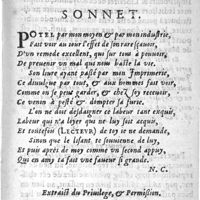 SONNET.
POTEL par mon moyen & par mon industrie,
Fait voir au iour l'effet de son rare sçauoir,
D'un remede excellent, qui sur tout a pouuoir,
De preuenir un mal qui nous baille la vie.
Son liure ayant passé par mon Imprimerie,
Ce diuulgue par tout, & aux hommes fait voir,
Comme on se peut garder, & chez soy receuoir
Ce venin de peste & dompter sa furie.
L'on ne doit desdaigner ce labeur tant exquis,
Labeur qui n'a loyer qui ne luy soit acquis
Et toutefois (LECTEVR) de toy ie ne demande,
Sinon que le lisant, te souuienne de luy,
Et puis apres de moy comme un second appuy,
Qui en amy t'a fait une faueur si grande.
N. C.
Extraict du Priuilege, & Permission.